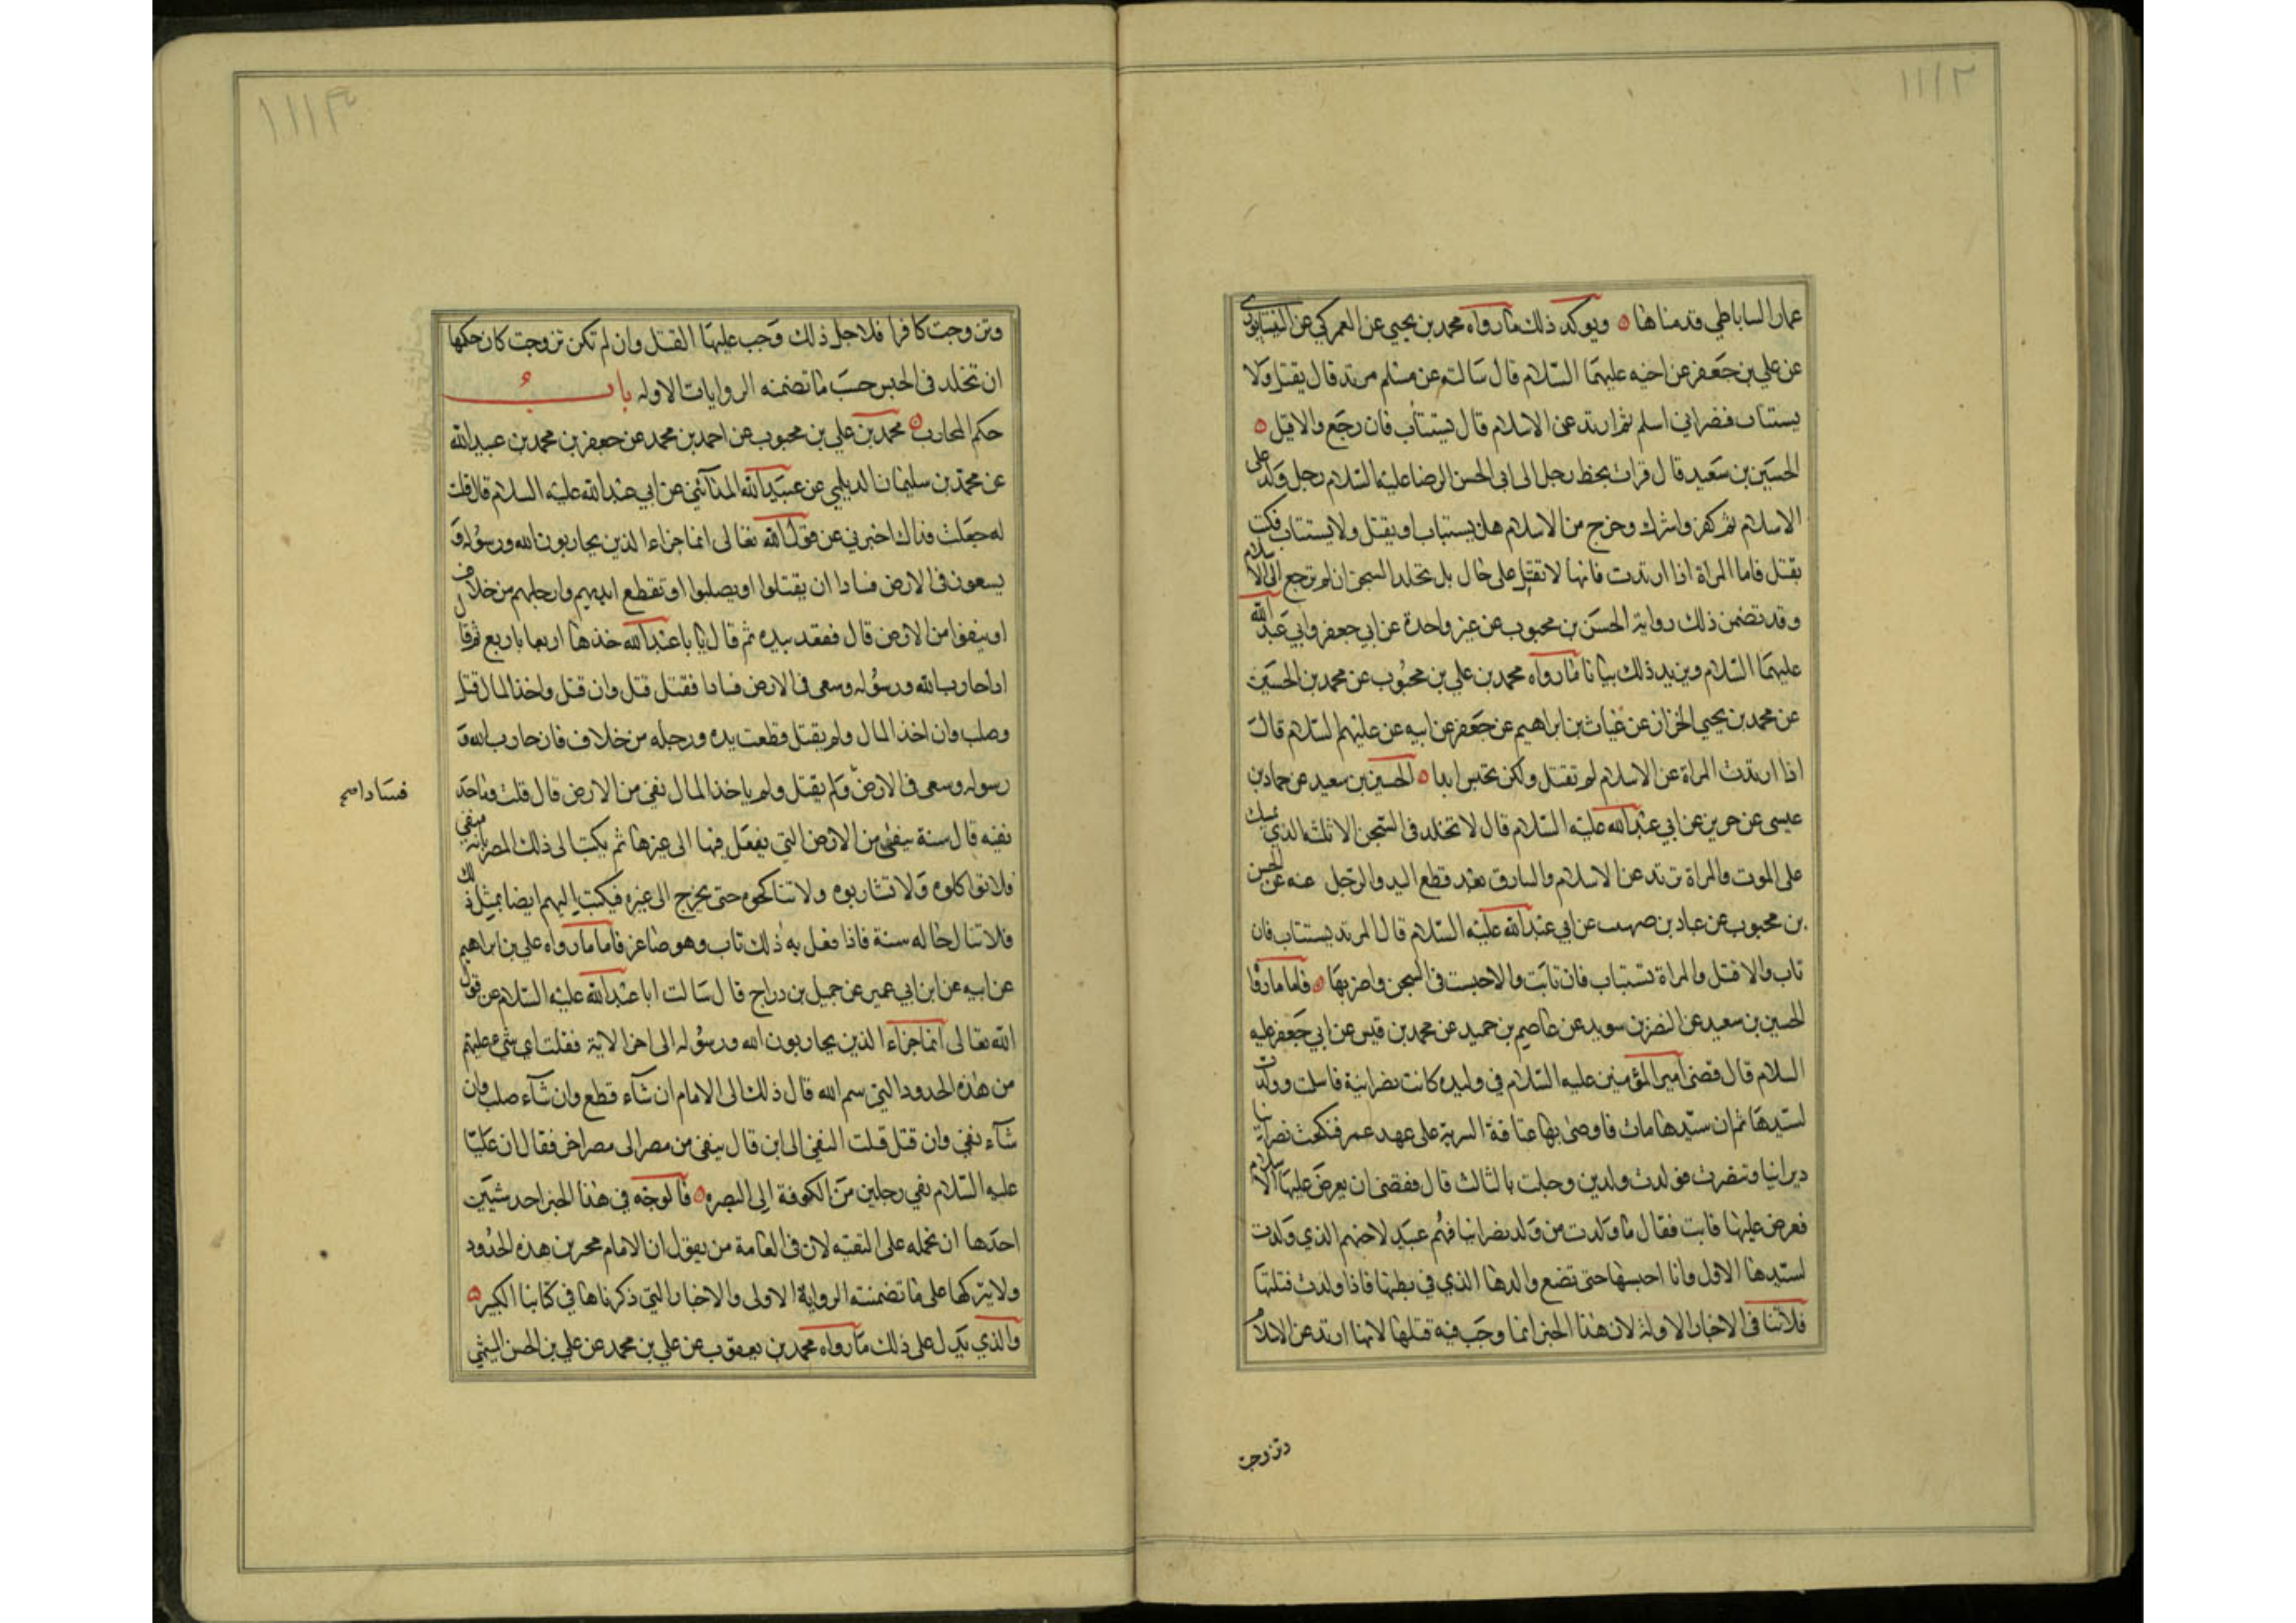 ١١١٢
عمار الساباطي قدمناها ه ويوكد ذلك ما رواه محمد بن يحيى عن العمركي عن النيسابوري
عن علي بن جعفر عن اخيه عليهما السلام قال سالته عن مسلم مرتد قال يقتل ولا
يستتاب فنصراني اسلم ثم ارتد عن الاسلام قال يستتاب فان رجع والا قتل ه
الحسين بن سعيد قال قرات بخط رجل الى ابي الحسن الرضا عليه السلام رجل ولد على
الاسلام ثم كفر واشرك وخرج من الاسلام هل يستتاب او يقتل ولا يستتاب فكتب
يقتل فاما المراة اذا ارتدت فانها لا تقتل على حال بل تخلد السجن ان لم ترجع الى الاسلام
وقد تضمن ذلك رواية الحسن بن محبوب عن غير واحدة عن ابي جعفر وابي عبد الله
عليهما السلام ويزيد ذلك بيانا ما رواه محمد بن علي بن محبوب عن محمد بن الحسين
عن محمد بن يحيى الخزاز عن غياث بن ابراهيم عن جعفر عن ابيه عن عليهم السلام قال
اذا ارتدت المراة عن الاسلام لم تقتل ولكن تحبس ابدا ه الحسين بن سعيد عن حماد بن
عيسى عن حريز عن ابي عبد الله عليه السلام قال لا تخلد في السجن الا ثلثه الذي يمسك
على الموت والمراة ترتد عن الاسلام والسارق بعد قطع اليد والرجل عنه عن الحسن
بن محبوب عن عباد بن صهيب عن ابي عبد الله عليه السلام قال المرتد يستتاب فان
تاب والا قتل والمراة تستتاب فان تابت والا حبست في السجن واضر بها ه فاما ما رواه
الحسين بن سعيد عن النضر بن سويد عن عاصم بن حميد عن محمد بن قيس عن ابي جعفر عليه
السلام قال قضى امير المؤمنين عليه السلام في وليده كانت نصرانية فاسلمت وولدت
لسيدها ثم ان سيدها مات فاوصى بها عتاقة السرية على عهد عمر فنكحت نصرانيا
ديرانيا وتنصرت فولدت ولدين وحبلت بالثالث قال فقضى ان يعرض عليها الاسلام
فعرض عليها فابت فقال ما ولدت من ولد نصرانيا فهم عبيد لاخيهم الذي ولدت
لسيدها الاول وانا احبسها حتى تضع ولدها الذي في بطنها فاذا ولدت قتلتها
فلا تنافي الاخبار الاوله لان هذا الخبر انما وجب فيه قتلها لانها ارتد عن الاسلام
وتزوجت
١١١٣
وتزوجت كافرا فلاجل ذلك وجب عليها القتل وان لم تكن تزوجت كان حكمها
ان تخلد في الحبس حسب ما تضمنه الروايات الاوله باب
حكم المحارب ه محمد بن علي بن محبوب عن احمد بن محمد عن جعفر بن محمد بن عبيد الله
عن محمد بن سليمان الديلمي عن عبيد الله المدائني عن ابي عبد الله عليه السلام قال قلت
له جعلت فداك اخبرني عن قول الله تعالى انما جزاء الذين يحاربون الله ورسوله و
يسعون في الارض فسادا ان يقتلوا او يصلبوا او تقطع ايديهم وارجلهم من خلاف
او ينفوا من الارض قال فعقد بيده ثم قال يا با عبد الله خذها اربعا باربع ثم قال
اذا حارب الله ورسوله وسعى في الارض فسادا فقتل قتل وان قتل واخذ المال قتل
وصلب وان اخذ المال ولم يقتل قطعت يده ورجله من خلاف فان حارب الله و
رسوله وسعى في الارض ولم يقتل ولم ياخذ المال نفي من الارض قال قلت وما حد
فسادا صح
نفيه قال سنة ينفى من الارض التي يفعل فيها الى غيرها ثم يكتب الى ذلك المصر بانه منفي
فلا تواكلوه ولا تشاربوه ولا تناكحوه حتى يخرج الى غيره فيكتب اليهم ايضا بمثل ذلك
فلا تنال حاله سنة فاذا فعل به ذلك تاب وهو صاغر فاما ما رواه علي بن ابراهيم
عن ابيه عن ابن ابي عمير عن جميل بن دراج قال سالت ابا عبد الله عليه السلام عن قول
الله تعالى انما جزاء الذين يحاربون الله ورسوله الى اخر الاية فقلت اي شيء عليهم
من هذه الحدود التي سم الله قال ذلك الى الامام ان شاء قطع وان شاء صلب وان
شاء نفى وان قتل قلت النفي الى اين قال ينفى من مصر الى مصر اخر فقال ان عليا
عليه السلام نفي رجلين من الكوفة الى البصره ه فالوجه في هذا الخبر احد شيئين
احدها ان نحمله على التقيه لان في العامة من يقول ان الامام مخير بين هذه الحدود
ولا يتركها على ما تضمنته الرواية الاولى والاخبار التي ذكرناها في كتابنا الكبير ه
والذي يدل على ذلك ما رواه محمد بن يعقوب عن علي بن محمد عن علي بن الحسن الميثمي